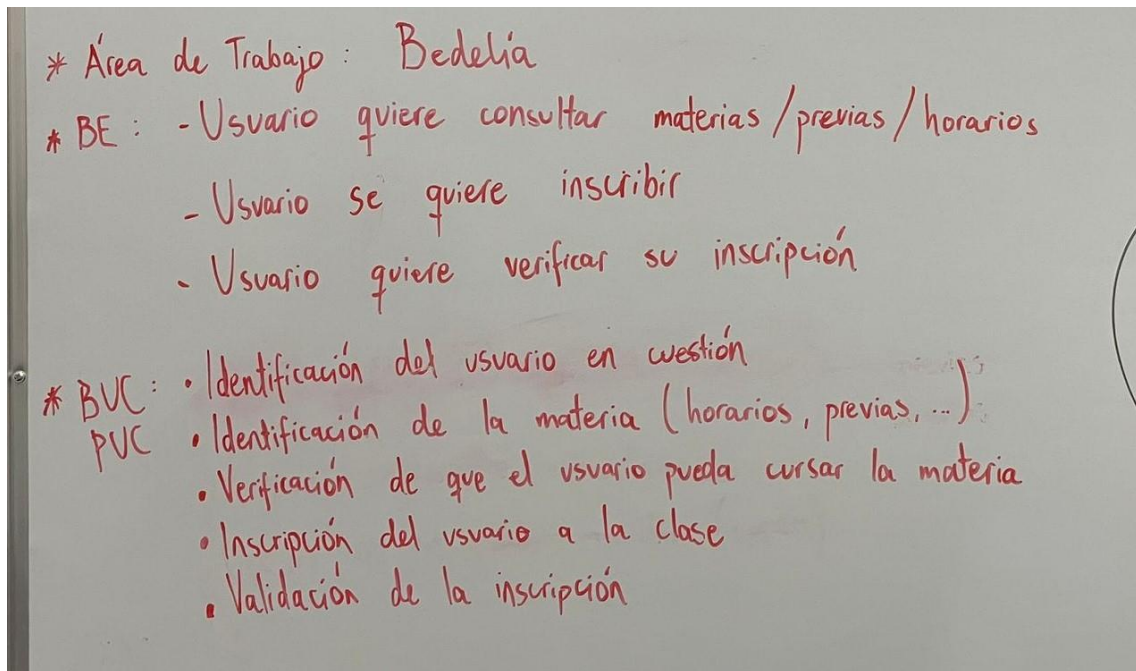 * Área de Trabajo: Bedelía
* BE: - Usuario quiere consultar materias/previas/horarios
- Usuario se quiere inscribir
- Usuario quiere verificar su inscripción
* BUC: • Identificación del usuario en cuestión
PUC • Identificación de la materia (horarios, previas, ...)
• Verificación de que el usuario pueda cursar la materia
• Inscripción del usuario a la clase
• Validación de la inscripción